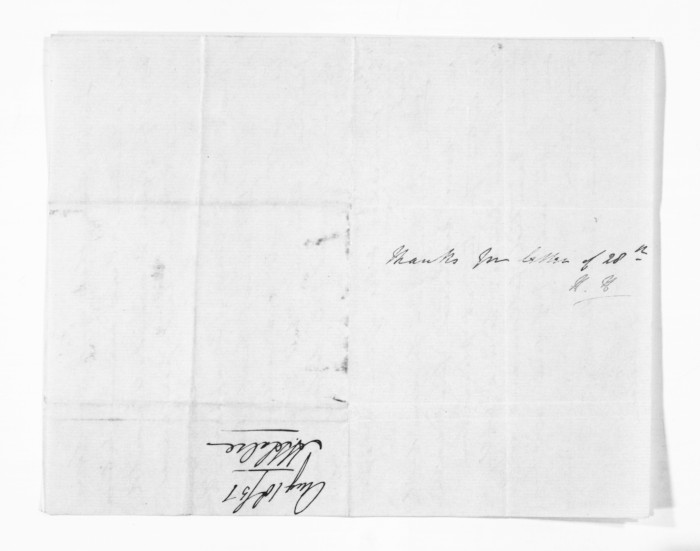 Thanks for letter of 28th
H. H
Aug 18/57